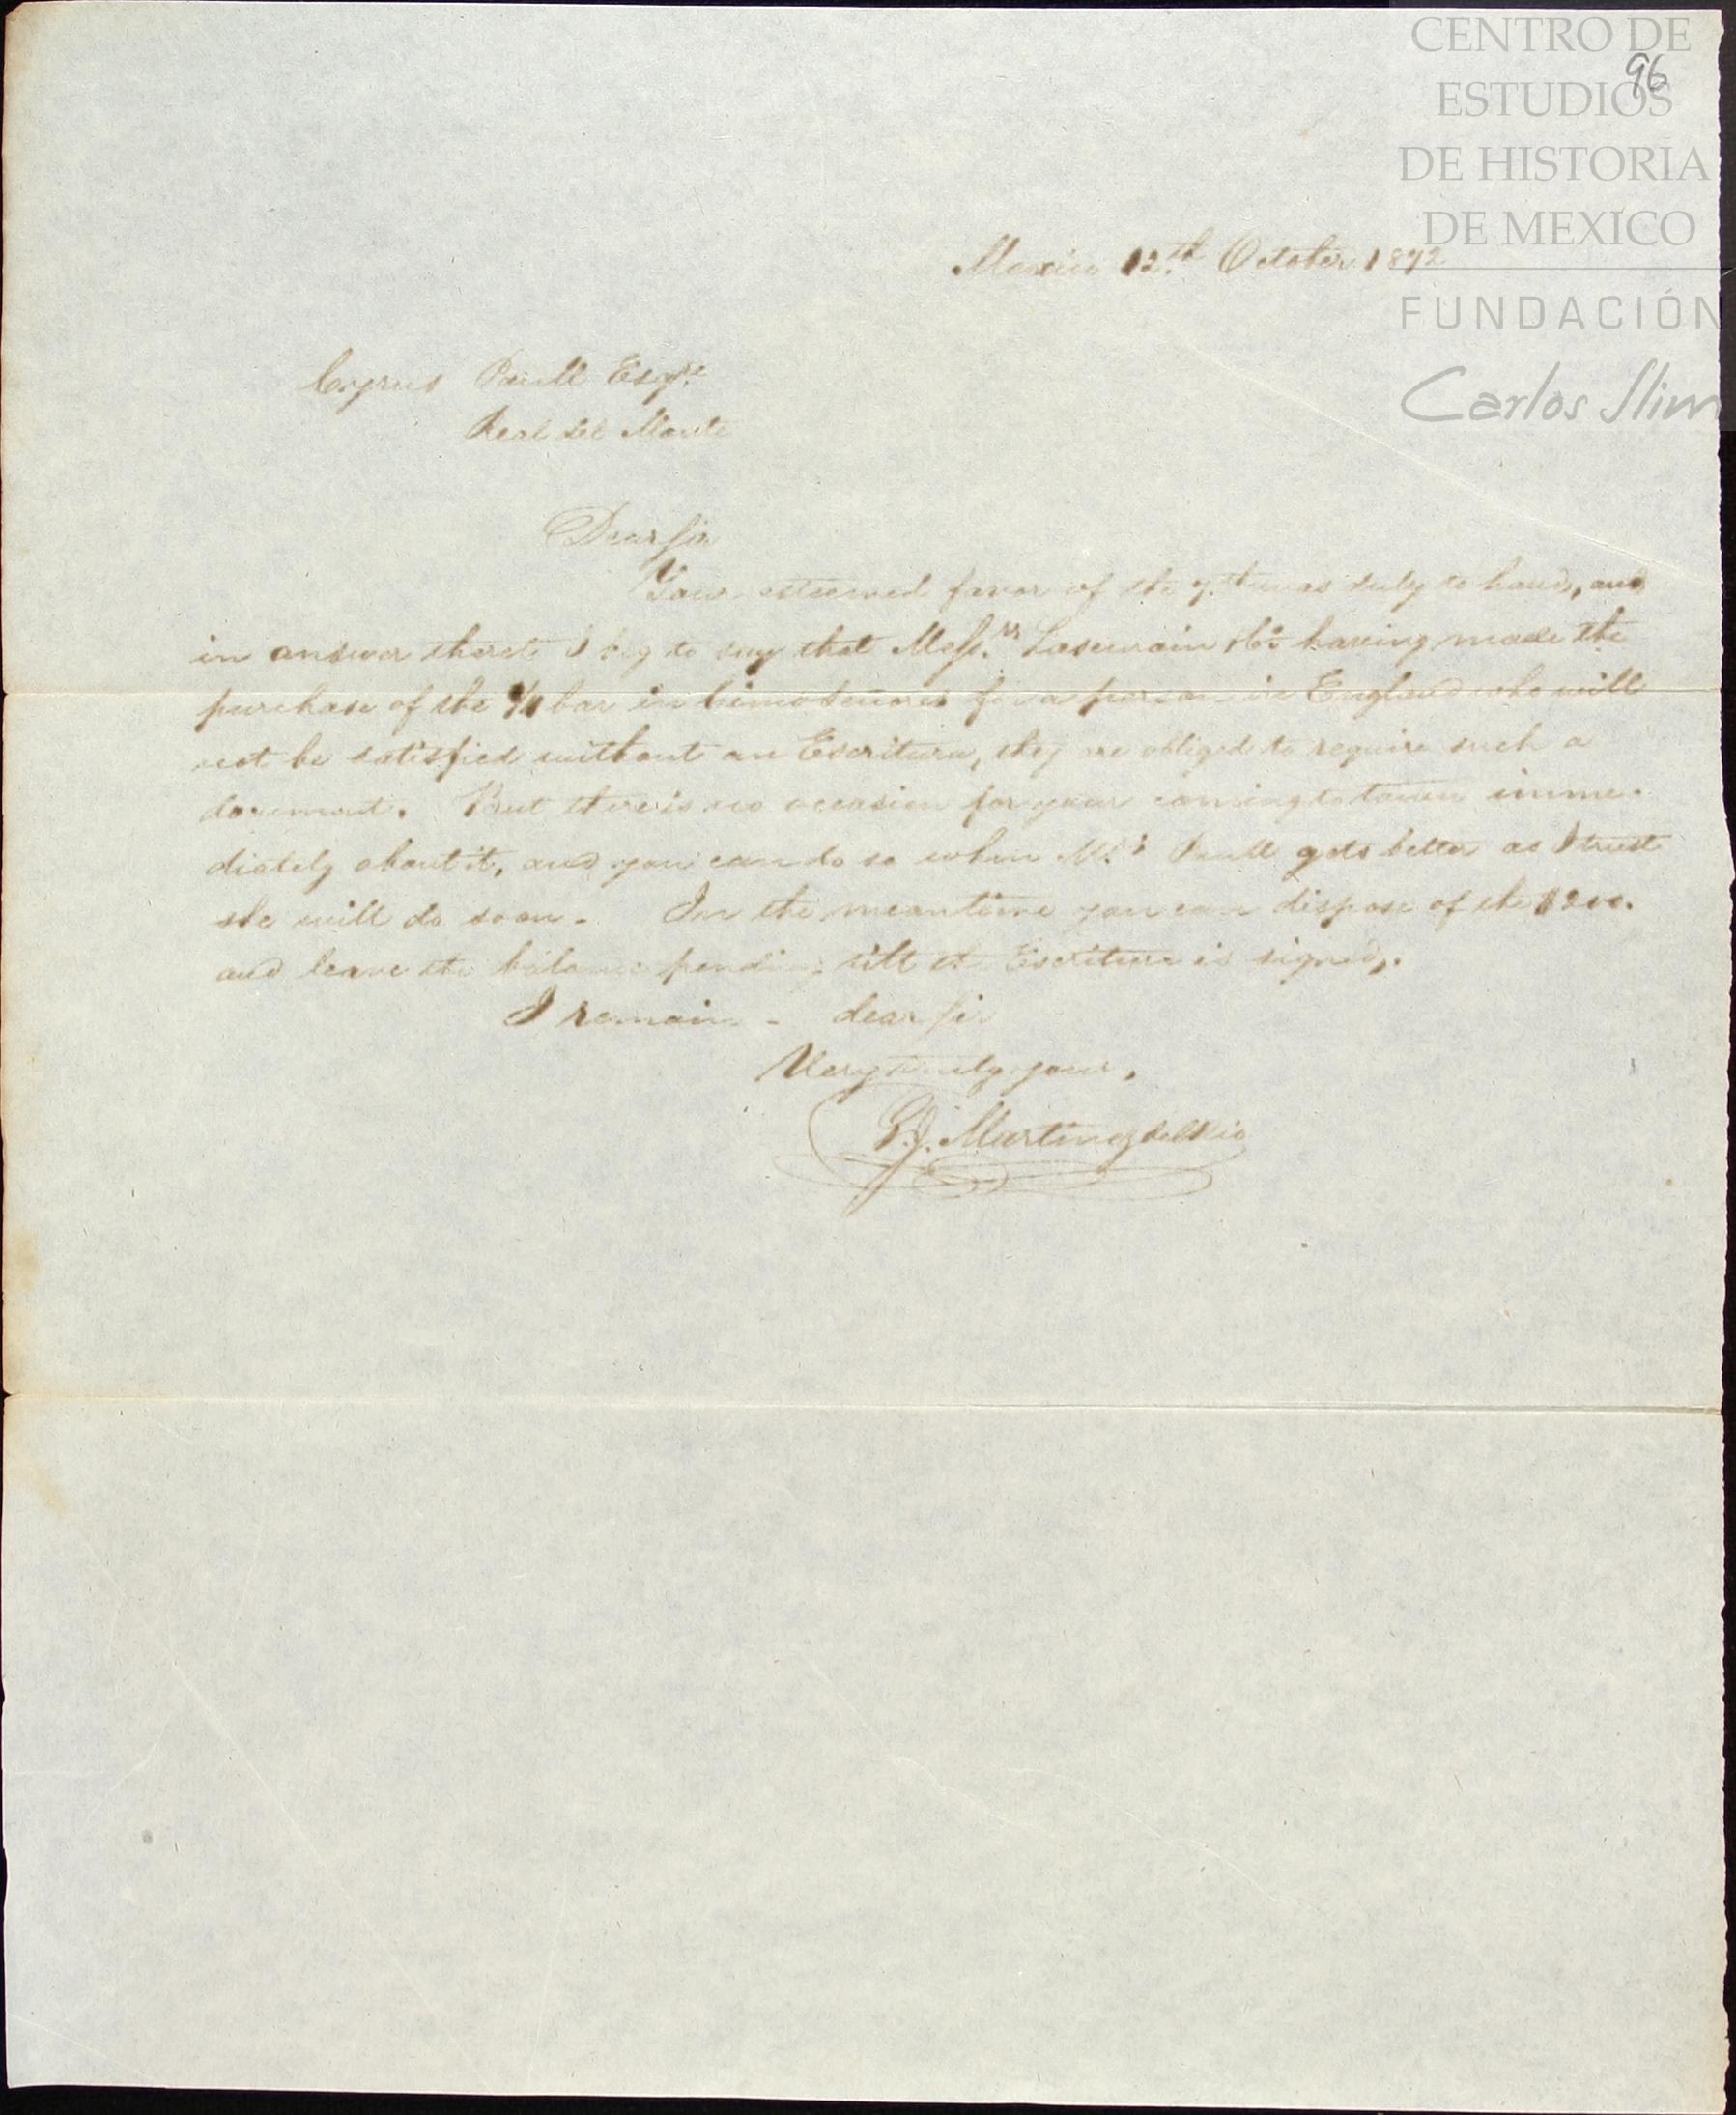 CENTRO DE
96
ESTUDIOS
DE HISTORIA
DE MEXICO
FUNDACIÓN
Carlos Slim
Mexico 12.th October 1872
Cyrus Paull Esqre
Real del Monte
Dear Sir
Your esteemed favor of the 7.th was duly to hand, and
in answer thereto I beg to say that Messrs. Lascurain & Co. having made the
purchase of the bar in Cinco Señores for a person in England who will
not be satisfied without an Escritura, they are obliged to require such a
document. But there is no occasion for your coming to town imme-
diately about it, and you can do so when Mrs. Paull gets better as I trust
she will do soon. In the meantime you can dispose of the $200.
and leave the balance pending till the Escritura is signed.
I remain - dear Sir
Very truly yours,
P.J. Martinez del Rio